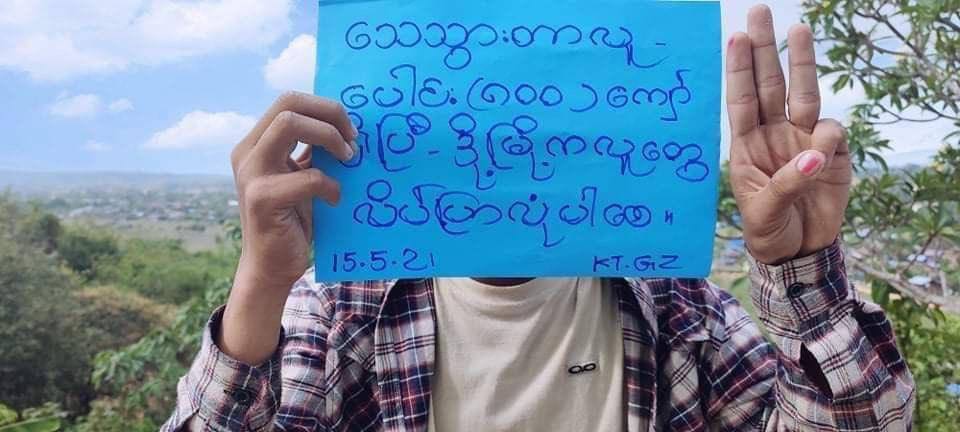 သေသွားတာလူ -
ပေါင်း (၈၀၀) ကျော်
ရှိပြီ - ဒို့မြို့ကလူတွေ
လိပ်ပြာလုံပါစေ ။
15.5.21 KT.GZ